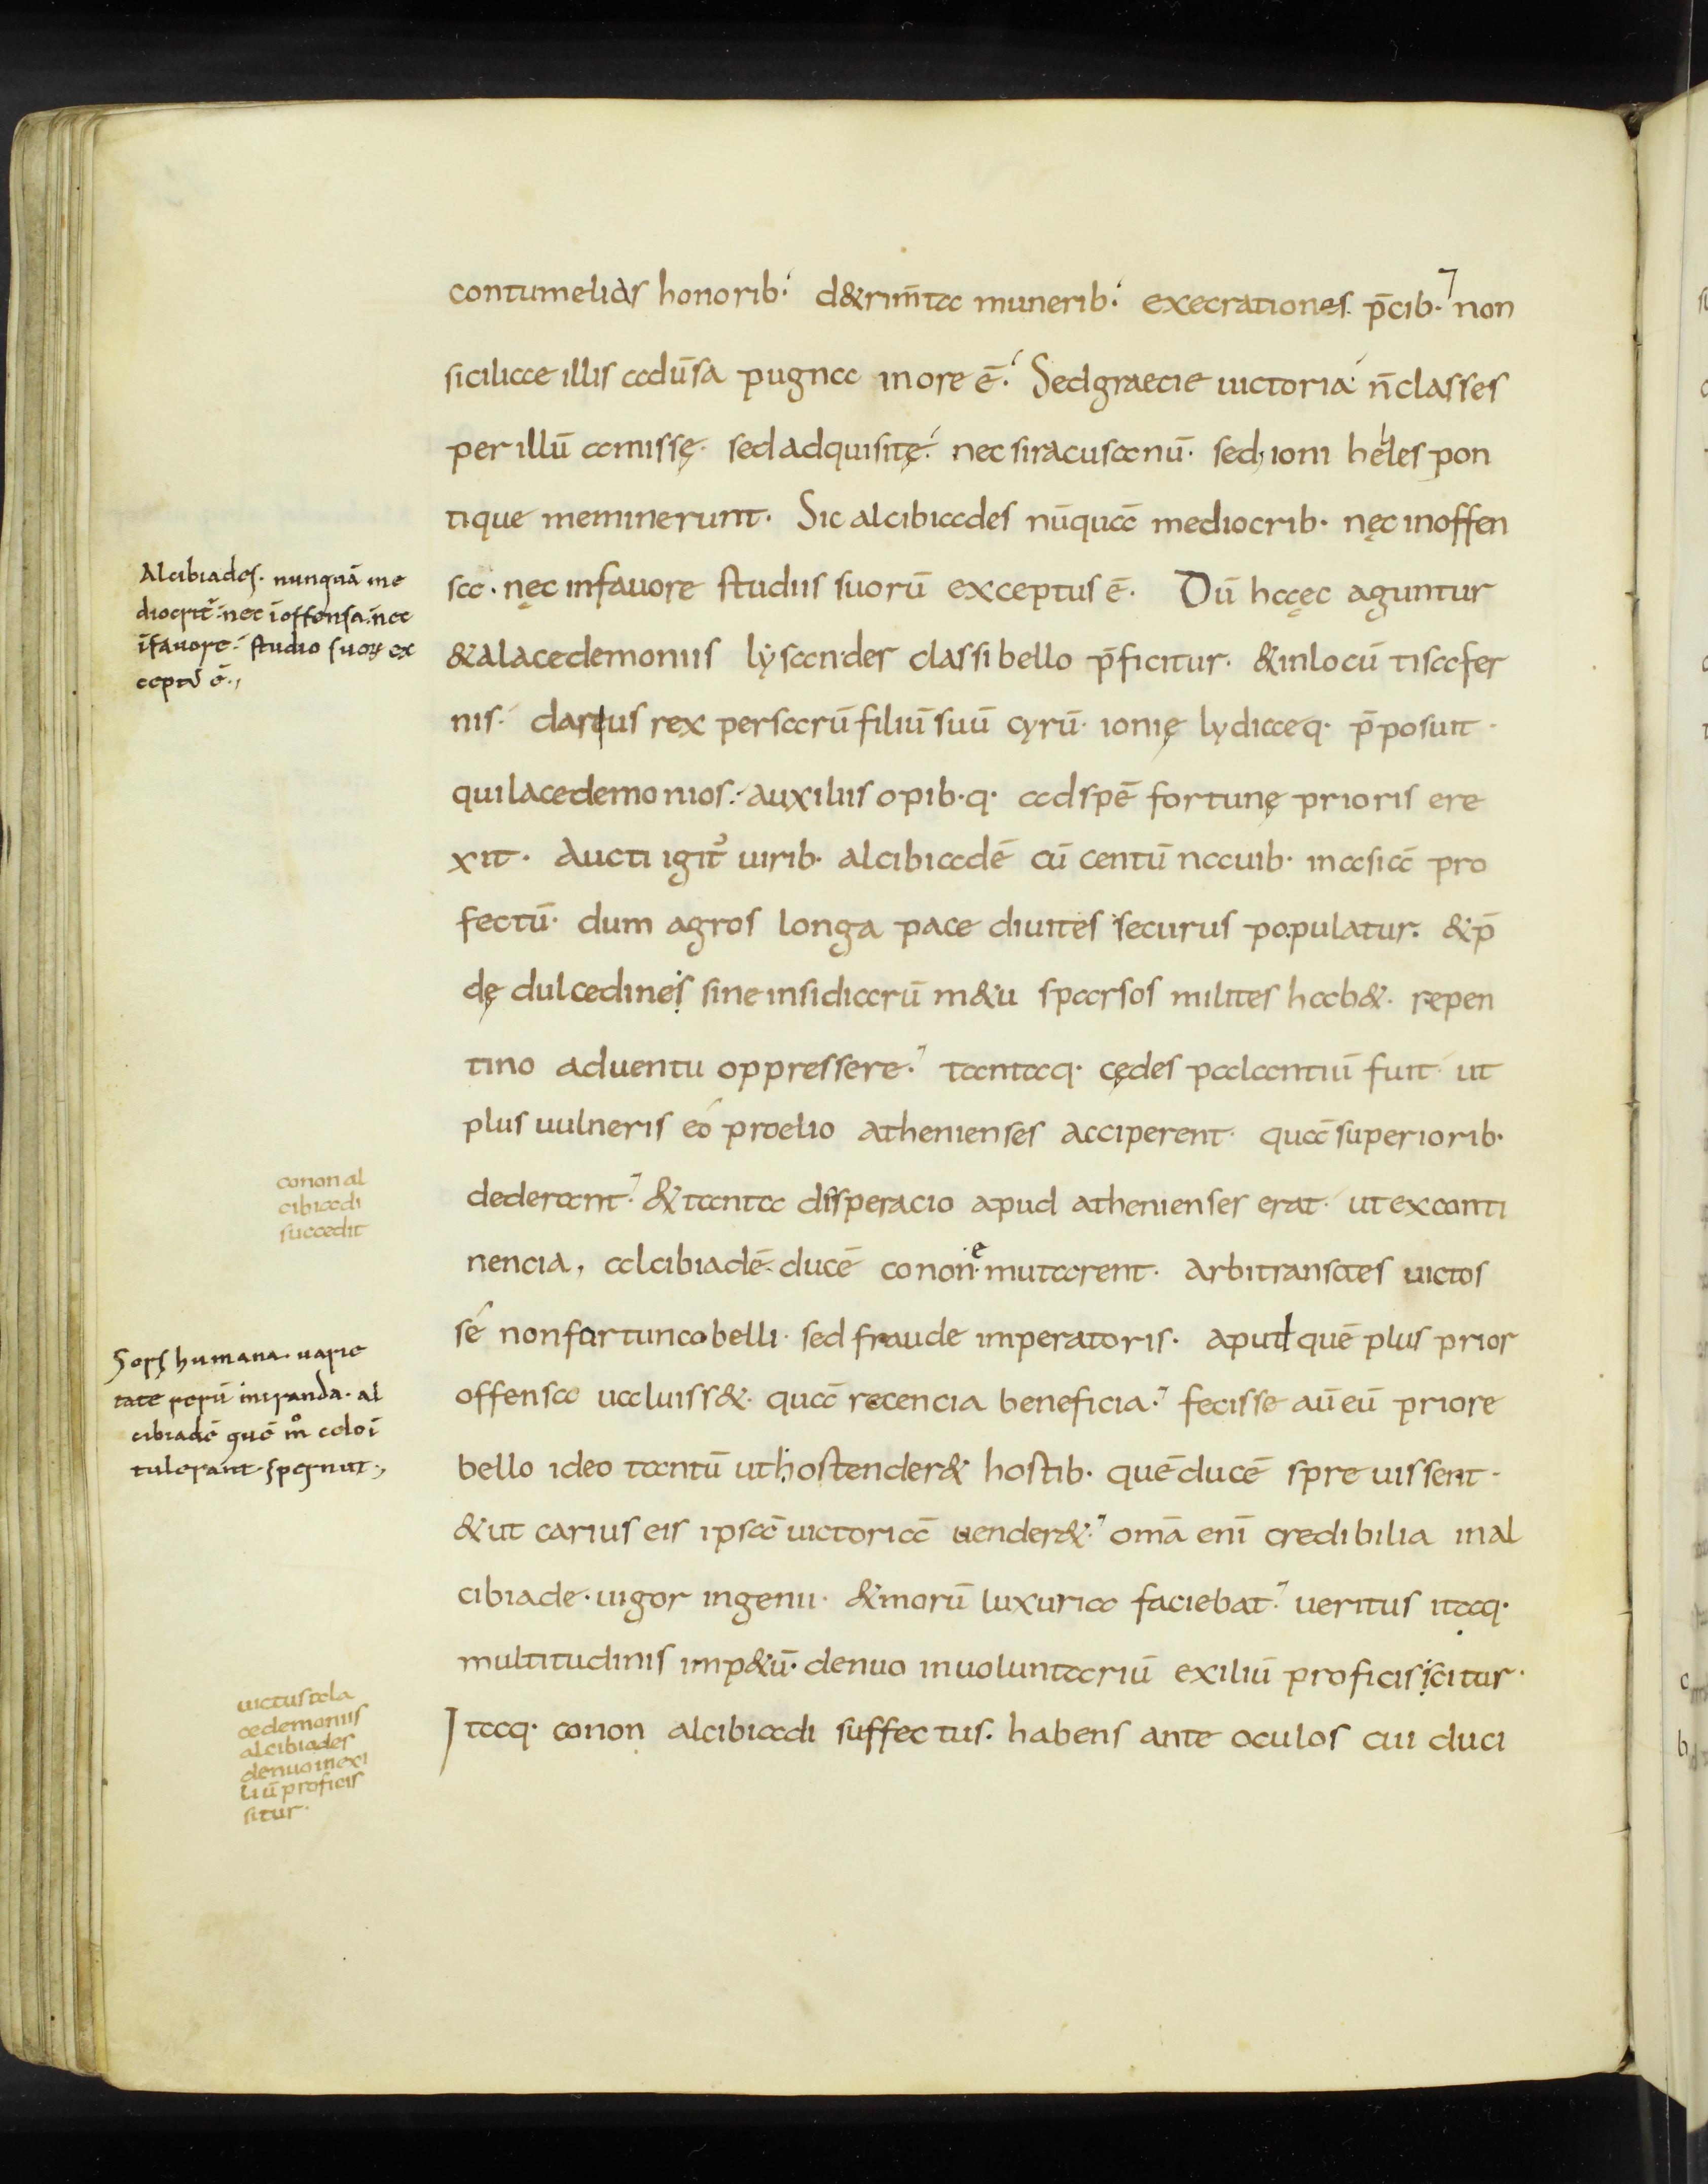 contumelias honorib· d&rim̄ta munerib· execrationes· p̄cib· ⁊ non
siciliae illis adūsa pugna in ore ē· Sed graecie uictoria· n̄ classes
per illū amissę· sed adquisitę· nec siracusanū· sed, ioni helles pon
tique meminerunt· Sic alcibiades nūquā mediocrib· nęc in offen
sa· nęc in fauore studiis suorū exceptus ē· Dū haęc aguntur
& a lacedemoniis lysander classi bello p̄ficitur· & in locū tisafer
nis· darius rex persarū filiū suū cyrū· ionię lydiaeq· p̄posuit·
qui lacedemonios· auxiliis opib·q· ad spē fortunę prioris ere
xit· Aucti igit᷒ uirib· alcibiadē cū centū nauib· in asiā pro
fectū· dum agros longa pace diuites securus populatur· & p̄
dę dulcedines sine insidiarū m&u sparsos milites hab&· repen
tino aduentu oppressere· tantaq· cędes palantiū fuit· ut
plus uulneris eo proelio athenienses acciperent· quā superiorib·
dederant· & tanta disperacio apud athenienses erat· ut ex conti
nencia, alcibiadē ducē conone mutarent· Arbitrantes uictos
se non fortuna belli· sed fraude imperatoris· apud quē plus prior
offensa ualuiss&· quā recencia beneficia· fecisse aū eū priore
bello ideo tantū ut hostender& hostib· quē ducē spreuissent·
& ut carius eis ipsā uictoriā uender&· om̄a eni credibilia in al
cibiade· uigor ingenii· & morū luxuria faciebat· ueritus itaq·
multitudinis imp&ū· denuo in uoluntariū exiliū proficisicitur·
Itaq· conon alcibiadi suffectus· habens ante oculos cui duci
Alcibiades· nunquā me
diocrit᷒· nec ī offensa· nec
ī fauore· studio suoꝝ ex
ceptus ē·,
conon al
cibiadi
succedit
Sors humana· uarie
tate rerū miranda· al
cibiadē quē m̊ celo ī
tulerant· spernūt·,
uictus a la
cedemoniis
alcibiades
denuo in exi
liū proficis
situr·